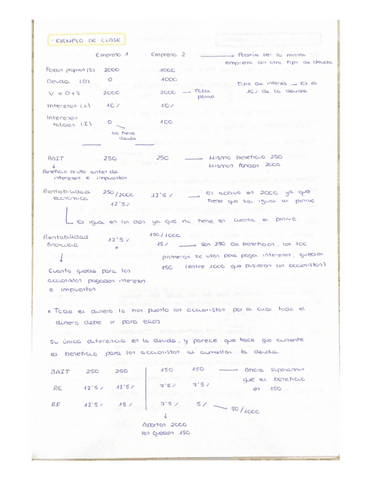 - EJEMPLO DE CLASE
Empresa 1 Empresa 2 → Podría ser la misma
empresa con otro tipo de deuda
Fondos propios (S) 2000 1000
Deuda (D) 0 1000 Tipo de interés → Es el
V = D+S 2000 2000 → Total 10% de la deuda
pasivo
Intereses (i) 10% 10%
Intereses
totales (I) 0 100
No tiene
deuda
BAIT 250 250 → Mismo beneficio 250
Mismos fondos 2000
Beneficio bruto antes de
intereses e impuestos
Rentabilidad 250/2000 12'5% → El activo es 2000 ya que
económica 12'5% tiene que ser igual al pasivo
Es igual en los dos ya que no tiene en cuenta el pasivo
Rentabilidad 12'5% 150/1000
financiera * 15% → Son 250 de beneficios, los 100
primeros se usan para pagar intereses, quedan
150 (entre 1000 que pusieron los accionistas)
Cuanto queda para los
accionistas pagados intereses
e impuestos
* Todo el dinero lo han puesto los accionistas por lo cual todo el
dinero debe ir para ellos
Su única diferencia es la deuda, y parece que hace que aumente
el beneficio para los accionistas al aumentar la deuda.
BAIT 250 250 150 150 → Ahora suponemos
que el beneficio
es 150
RE 12'5% 12'5% 7'5% 7'5%
RF 12'5% 15% 7'5 5% → 50/1000
Aportan 2000
les quedan 150